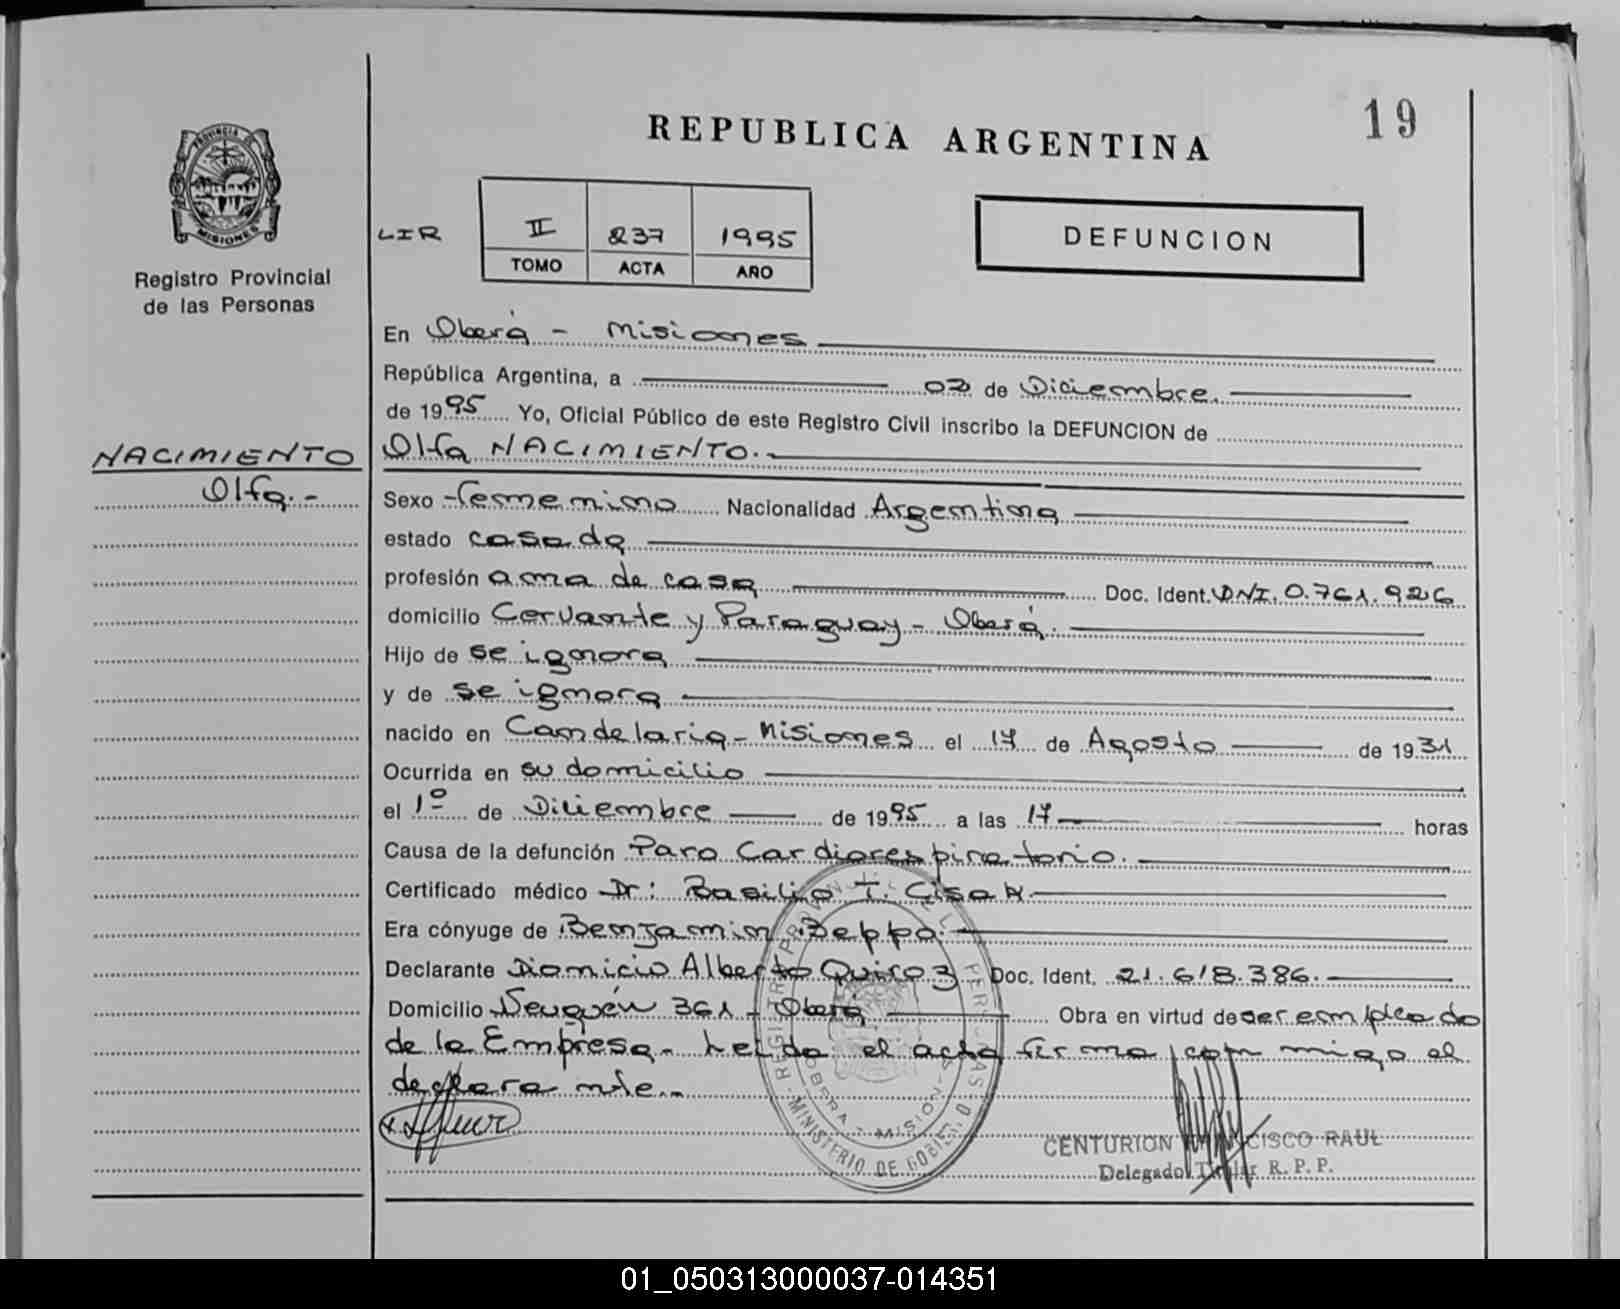 19
REPUBLICA ARGENTINA
PROVINCIA DE
MISIONES
Registro Provincial
de las Personas
LIR
II 237 1995
TOMO ACTA AÑO
DEFUNCION
En Oberá - Misiones
República Argentina, a 02 de Diciembre.
de 1995 Yo, Oficial Público de este Registro Civil inscribo la DEFUNCION de
NACIMIENTO
Olfa.-
Olfa NACIMIENTO.
Sexo femenino Nacionalidad Argentina
estado casada
profesión ama de casa Doc. Ident. DNI. 0.761.926
domicilio Cervante y Paraguay - Oberá.
Hijo de se ignora
y de se ignora
nacido en Candelaria - Misiones el 17 de Agosto de 1931
Ocurrida en su domicilio
el 1º de Diciembre de 1995 a las 17 horas
Causa de la defunción Paro Cardiorespiratorio.
Certificado médico Dr: Basilio T. Cisak
Era cónyuge de Benjamin Beppa.
Declarante Dionicio Alberto Quiroz Doc. Ident. 21.618.386.
Domicilio Neuquén 361 - Oberá Obra en virtud de ser empleado
de la Empresa.- Leida el acta firma conmigo el
declarante.-
CENTURION FRANCISCO RAUL
Delegado Titular R. P. P.
REGISTRO PROVINCIAL DE LAS PERSONAS
OBERA - MISIONES
MINISTERIO DE GOBIERNO
01_050313000037-014351